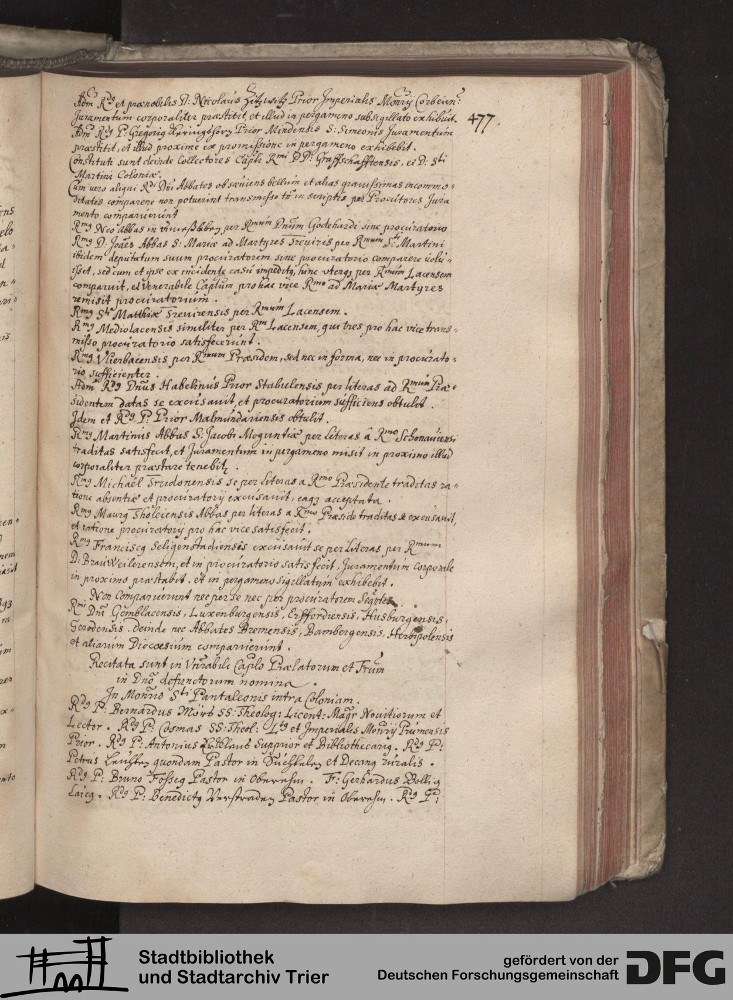 Adm Rdg et prænobilis D: Nicolaus Zitzwitz Prior Imperialis Monrÿ Corbeien:
Juramentum corporaliter præstitit, et illud in pergameno subsigillato exhibuit.
477.
Adm Rdg P. Gregorig Prior Mindensis S: Simeonis Juramentum
præstitit, et illud proxime ex promissione in pergameno exhibebit.
Constituti sunt deinde Collectores Capli Rmi D.D. Graffschafftensis, et D: Sti
Martini Coloniæ.
Cum vero aliqui Rdi Dni Abbates ob sæviens bellum et alias gravissimas incommo=
ditates comparere non potuerint transmisso tn in scriptis per Procutores Jura
mento comparuerunt
Rmg Neo abbas in per Rmum Dnum Godehardi sine procuratorio
Rmg D. Joães Abbas S: Mariæ ad Martyres Treviris per Rmum Sti Martini
ibidem deputatum suum procuratorem sine procuratorio comparere volu=
isset, sed cum et ipse ex incidente casu impeditg, hinc uterg per Rmum Lacensem
comparuit, et Venerabile Caplum pro hac vice Rmo ad Mariæ Martyres
remisit procuratorium.
Rmg Sti Matthiæ Trevirensis per Rmum Lacensem.
Rmg Mediolacensis similiter per Rm Lacensem, qui tres pro hac vice trans=
misso procuratorio satisfecerunt.
Rmg Vlierbacensis per Rmum Præsidem, sed nec in forma, nec in procurato=
rio sufficienter.
Adm Rdg Dnus Habelinus Prior Stabulensis per literas ad Rmum Præ=
sidentem datas se excusavit, et procuratorium sufficiens obtulit.
Idem et Rdg P. Prior Malmundariensis obtulit.
Rmg Martinus Abbas S: Jacobi Moguntiæ per literas â Rmo Schonaviensi
traditas satisfecit, et Juramentum in pergameno misit in proximo illud
corporaliter præstare tenebitr.
Rmg Michael Trudonensis se per literas a Rmo Præsidente traditas ra=
tione absentiæ et procuratorÿ excusavit, eag acceptata.
Rmg Maurg Tholeiensis Abbas per literas a Rmo Præside traditas se excusavit,
et ratione procuratorÿ pro hac vice satisfecit.
Rmg Franciscg Seligenstadiensis excusavit se per literas per Rmum
D: Brauweilerensem, et in procuratorio satisfecit, Juramentum corporale
in proximo præstabit, et in pergameno sigillatum exhibebit.
Non comparuerunt nec per se nec per procuratorem
Rmi Dni Gemblacensis, Luxenburgensis, Erffordiensis, Husburgensis,
deinde nec Abbates Bremensis, Bambergensis, Herbipolensis
et aliarum Diocæsium comparuerunt.
Recitata sunt in Vnrabili Caplo Prælatorum et Frum
in Dno defunctorum nomina.
In Monrio Sti Pantaleonis intra Coloniam.
Rdg P. Bernardus SS: Theologi Licent: Magr Novitiorum et
Lector. Rdg P: Cosmas SS: Theol: Ltg et Imperialis Monrÿ Prumensis
Prior. Rdg P: Antonius Supprior et Bibliothecarig. Rdg P:
Petrus quondam Pastor in Süchtelen et Decang ruralis.
Rdg P: Bruno Fossig Pastor in Oberehm. F: Gerhardus
Laicg. Rdg P: Benedictg Verstraden Pastor in Oberehm. Rdg P:
Stadtbibliothek
und Stadtarchiv Trier
gefördert von der
Deutschen Forschungsgemeinschaft
DFG